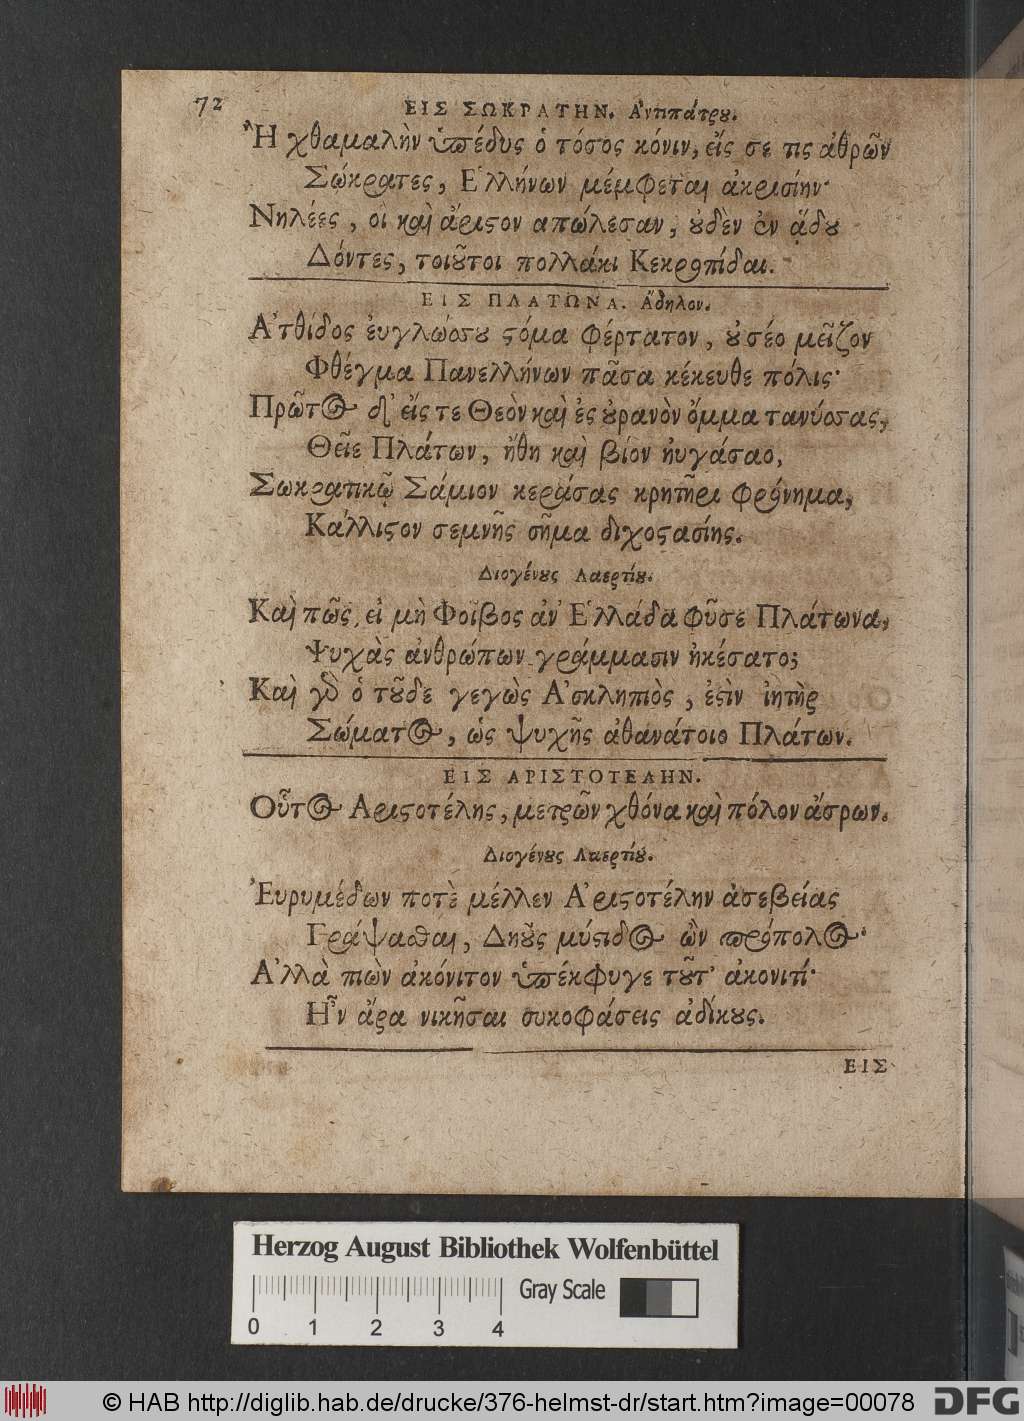 72
ΕΙΣ ΣΩΚΡΑΤΗΝ. Ἀντιπάτρου.
Ἦ χθαμαλὴν ὑπέδυς ὁ τόσος κόνιν, εἴς σέ τις ἀθρῶν
Σώκρατες, Ἑλλήνων μέμφεται ἀκρισίην·
Νηλέες, οἳ καὶ ἄριστον ἀπώλεσαν, οὐδὲν ἐν ᾅδου
Δόντες, τοιοῦτοι πολλάκι Κεκροπίδαι.
ΕΙΣ ΠΛΑΤΩΝΑ. Ἄδηλον.
Ἀτθίδος ἐυγλώσσου στόμα φέρτατον, οὐ σέο μεῖζον
Φθέγμα Πανελλήνων πᾶσα κέκευθε πόλις·
Πρῶτος δ' εἴς τε Θεὸν καὶ ἐς οὐρανὸν ὄμμα τανύσσας,
Θεῖε Πλάτων, ἤθη καὶ βίον ηὐγάσαο,
Σωκρατικῷ Σάμιον κεράσας κρητῆρι φρόνημα,
Κάλλιστον σεμνῆς σῆμα διχοστασίης.
Διογένους Λαερτίου.
Καὶ πῶς, εἰ μὴ Φοῖβος ἀν' Ἑλλάδα φῦσε Πλάτωνα,
Ψυχὰς ἀνθρώπων γράμμασιν ἠκέσατο;
Καὶ γὰρ ὁ τοῦδε γεγὼς Ἀσκληπιὸς, ἐστὶν ἰητὴρ
Σώματος, ὡς ψυχῆς ἀθανάτοιο Πλάτων.
ΕΙΣ ΑΡΙΣΤΟΤΕΛΗΝ.
Οὗτος Ἀριστοτέλης, μετρῶν χθόνα καὶ πόλον ἄστρων.
Διογένους Λαερτίου.
Εὐρυμέδων ποτὲ μέλλεν Ἀριστοτέλην ἀσεβείας
Γράψασθαι, Δηοῦς μύστιδος ὢν πρόπολος·
Ἀλλὰ πιὼν ἀκόνιτον ὑπέκφυγε τοῦτ' ἀκονιτί·
Ἦν ἄρα νικῆσαι συκοφάσεις ἀδίκους.
ΕΙΣ
Herzog August Bibliothek Wolfenbüttel
Gray Scale
0 1 2 3 4
© HAB http://diglib.hab.de/drucke/376-helmst-dr/start.htm?image=00078 DFG